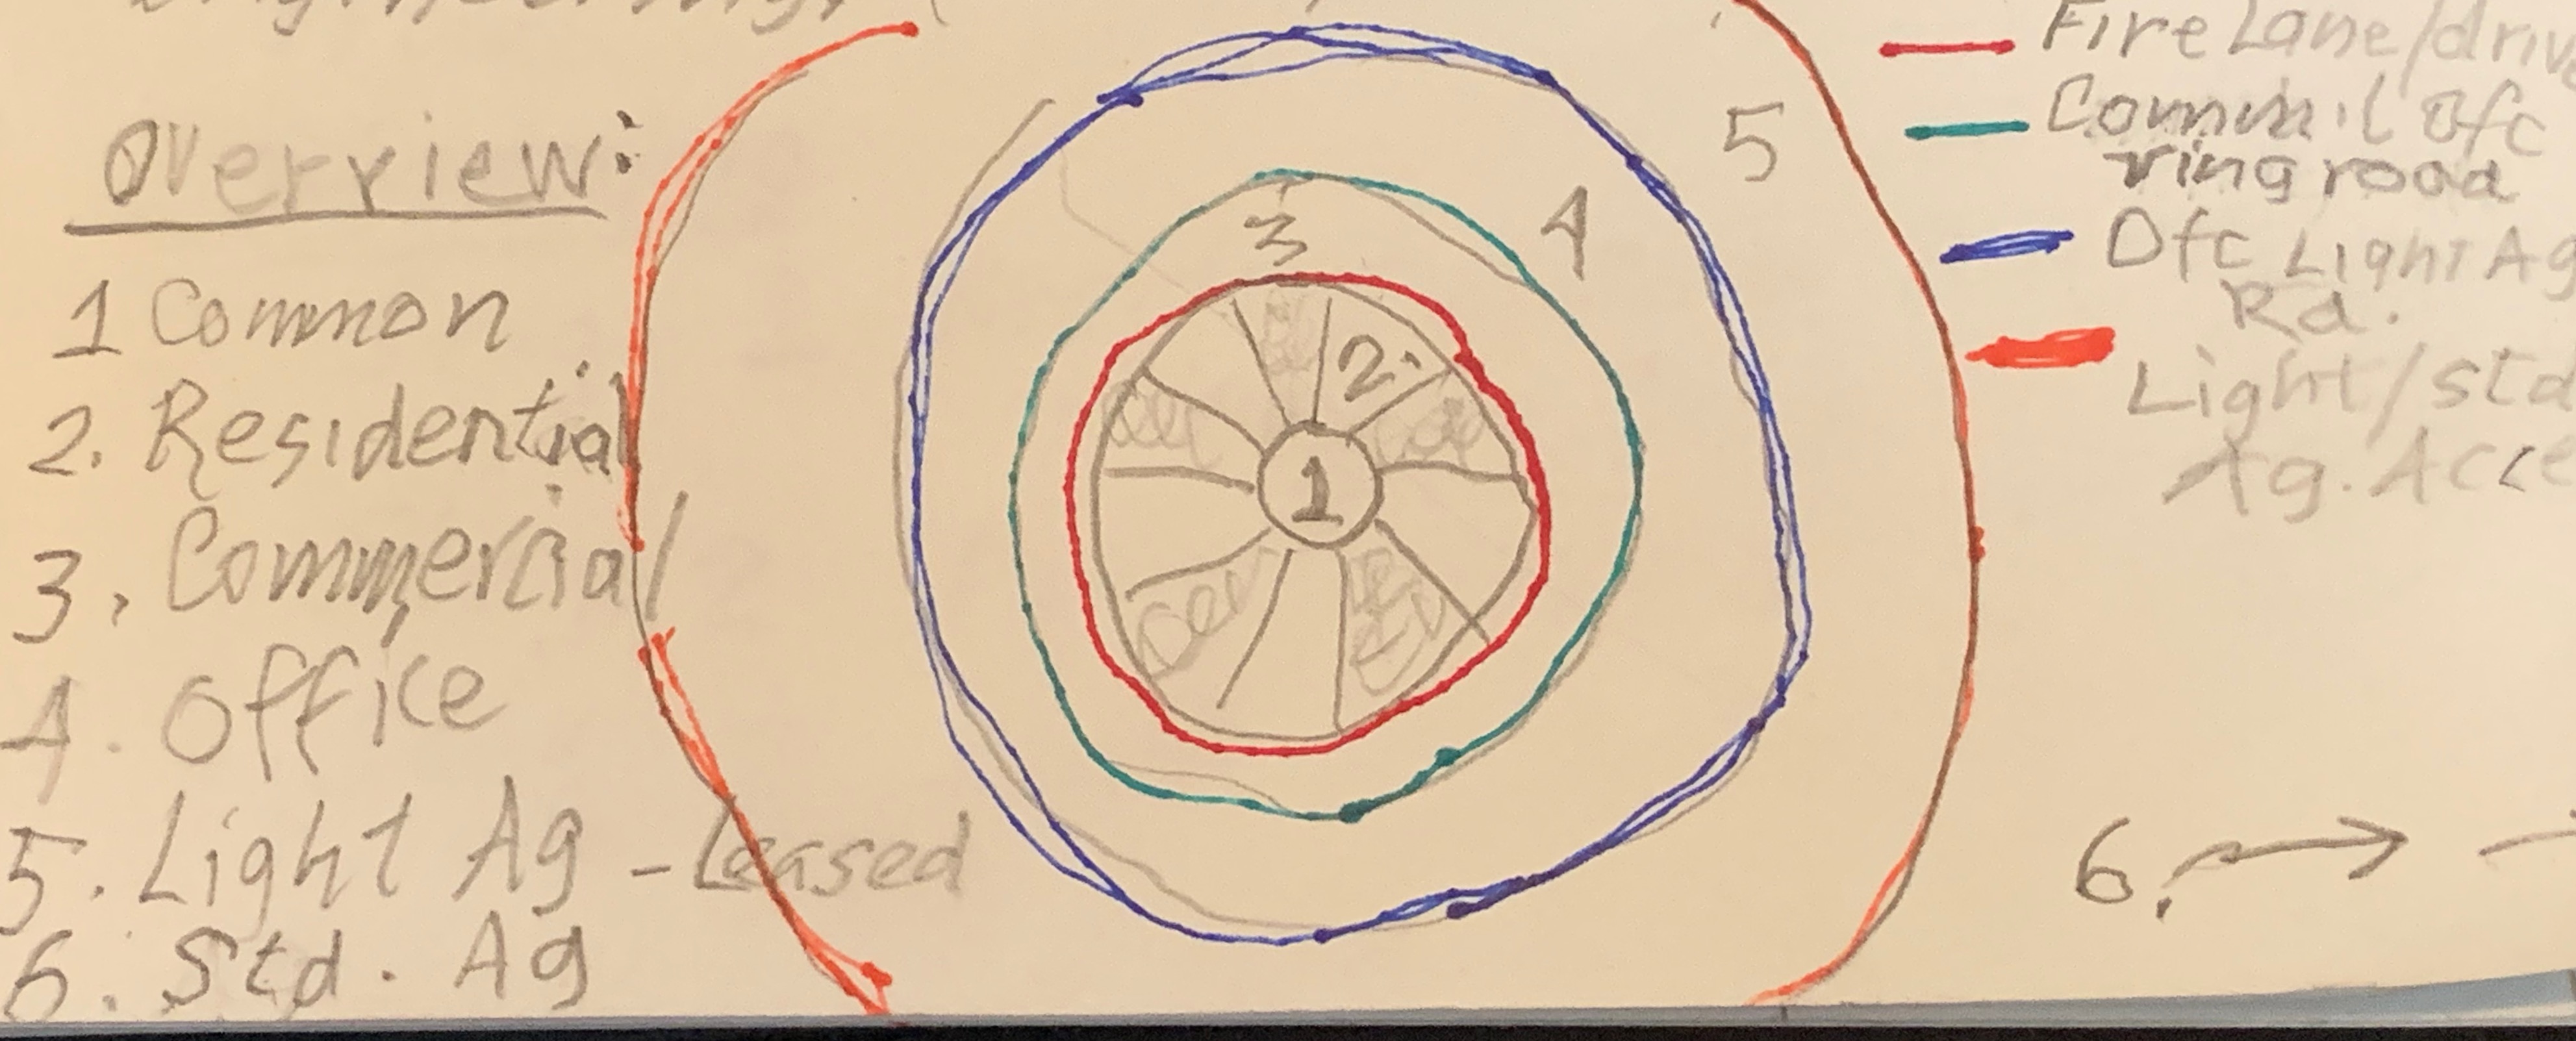 Overview:
1 Common
2. Residential
3. Commercial
4. Office
5. Light Ag - Leased
6. Std. Ag
1
2
3
4
5
6.
Fire Lane/driv
Comm'l Ofc
ring road
Ofc Light Ag
Rd.
Light/std
Ag. Acce